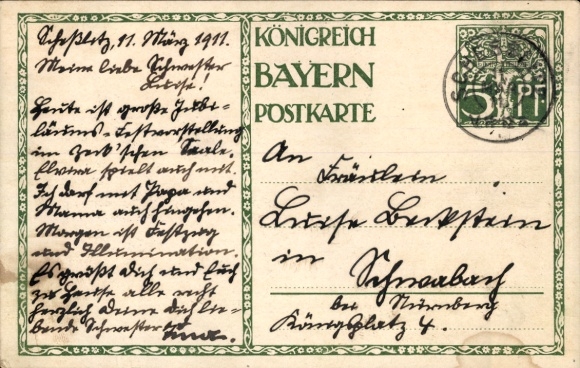 Scheßlitz, 11. März 1911.
Meine liebe Schwester
Luise!
Heute ist große Jubi-
läums-Festvorstellung
im Zeck'schen Saale.
Elvira spielt auch mit.
Ich darf mit Papa und
Mama auch hingehen.
Morgen ist Festzug
und Illumination.
Es grüßt dich und Euch
zu Hause alle recht
herzlich deine dich lie-
bende Schwester
KÖNIGREICH
BAYERN
POSTKARTE
5 Pf
An
Fräulein
Luise Beckstein
in
Schwabach
bei Nürnberg
Königsplatz 4.